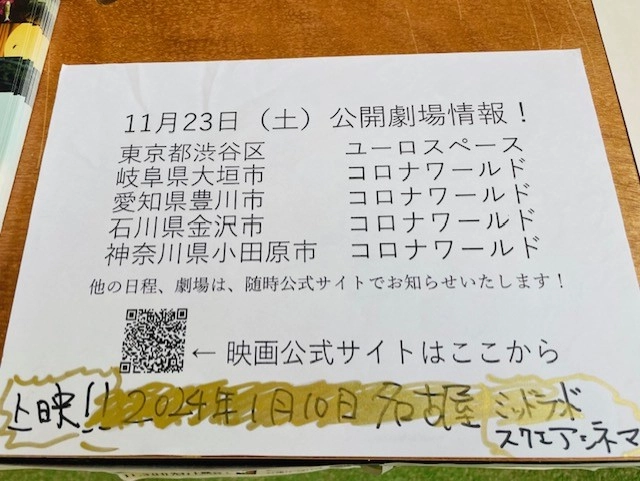 11月23日（土）公開劇場情報！
東京都渋谷区 ユーロスペース
岐阜県大垣市 コロナワールド
愛知県豊川市 コロナワールド
石川県金沢市 コロナワールド
神奈川県小田原市 コロナワールド
他の日程、劇場は、随時公式サイトでお知らせいたします！
← 映画公式サイトはここから
上映!! 2024年1月10日 名古屋 ミッドランド
スクエアシネマ